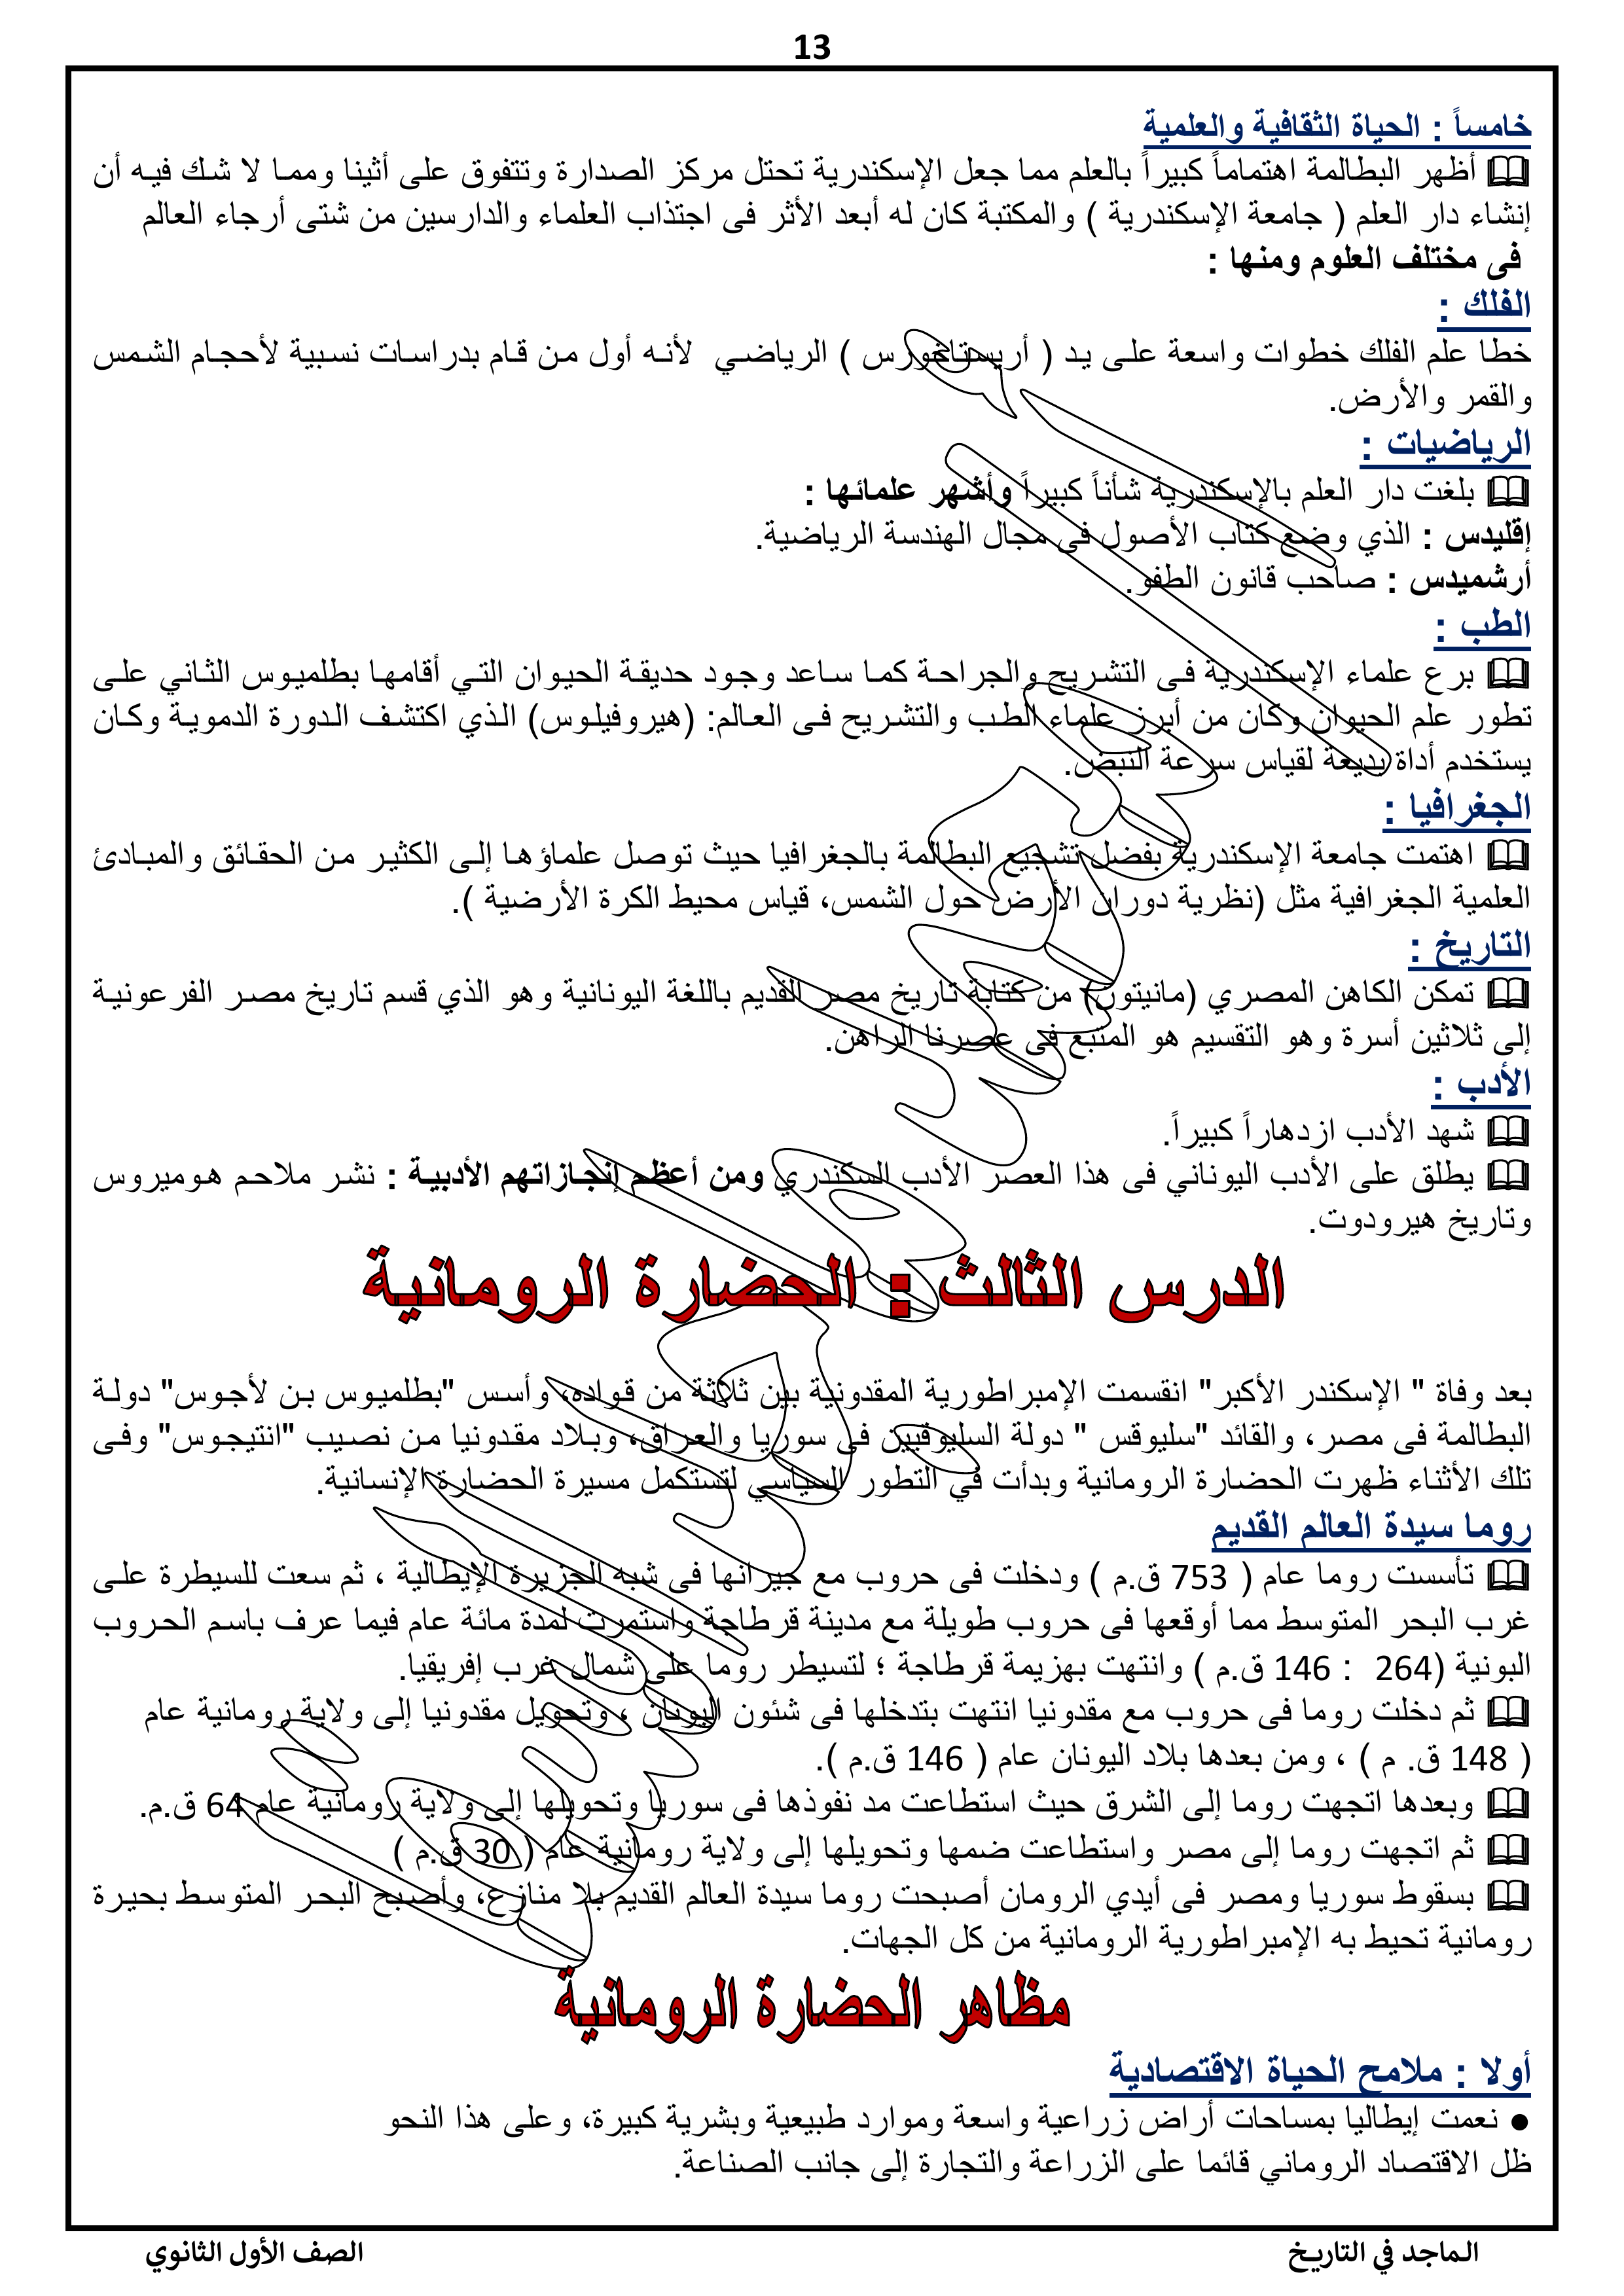 13
خامساً : الحياة الثقافية والعلمية
أظهر البطالمة اهتماماً كبيراً بالعلم مما جعل الإسكندرية تحتل مركز الصدارة وتتفوق على أثينا ومما لا شك فيه أن
إنشاء دار العلم ( جامعة الإسكندرية ) والمكتبة كان له أبعد الأثر فى اجتذاب العلماء والدارسين من شتى أرجاء العالم
فى مختلف العلوم ومنها :
الفلك :
خطا علم الفلك خطوات واسعة على يد ( أريستاخورس ) الرياضي لأنه أول من قام بدراسات نسبية لأحجام الشمس
والقمر والأرض.
الرياضيات :
بلغت دار العلم بالإسكندرية شأناً كبيراً وأشهر علمائها :
إقليدس : الذي وضع كتاب الأصول فى مجال الهندسة الرياضية.
أرشميدس : صاحب قانون الطفو.
الطب :
برع علماء الإسكندرية فى التشريح والجراحة كما ساعد وجود حديقة الحيوان التي أقامها بطلميوس الثاني على
تطور علم الحيوان وكان من أبرز علماء الطب والتشريح فى العالم: (هيروفيلوس) الذي اكتشف الدورة الدموية وكان
يستخدم أداة بديعة لقياس سرعة النبض.
الجغرافيا :
اهتمت جامعة الإسكندرية بفضل تشجيع البطالمة بالجغرافيا حيث توصل علماؤها إلى الكثير من الحقائق والمبادئ
العلمية الجغرافية مثل (نظرية دوران الأرض حول الشمس، قياس محيط الكرة الأرضية ).
التاريخ :
تمكن الكاهن المصري (مانيتون) من كتابة تاريخ مصر القديم باللغة اليونانية وهو الذي قسم تاريخ مصر الفرعونية
إلى ثلاثين أسرة وهو التقسيم هو المتبع فى عصرنا الراهن.
الأدب :
شهد الأدب ازدهاراً كبيراً.
يطلق على الأدب اليوناني فى هذا العصر الأدب السكندري ومن أعظم إنجازاتهم الأدبية : نشر ملاحم هوميروس
وتاريخ هيرودوت.
الدرس الثالث : الحضارة الرومانية
بعد وفاة " الإسكندر الأكبر" انقسمت الإمبراطورية المقدونية بين ثلاثة من قواده، وأسس "بطلميوس بن لأجوس" دولة
البطالمة فى مصر، والقائد "سليوقس " دولة السليوقيين فى سوريا والعراق، وبلاد مقدونيا من نصيب "انتيجوس" وفى
تلك الأثناء ظهرت الحضارة الرومانية وبدأت في التطور السياسي لتستكمل مسيرة الحضارة الإنسانية.
روما سيدة العالم القديم
تأسست روما عام ( 753 ق.م ) ودخلت فى حروب مع جيرانها فى شبه الجزيرة الإيطالية ، ثم سعت للسيطرة على
غرب البحر المتوسط مما أوقعها فى حروب طويلة مع مدينة قرطاجة واستمرت لمدة مائة عام فيما عرف باسم الحروب
البونية (264 : 146 ق.م ) وانتهت بهزيمة قرطاجة ؛ لتسيطر روما على شمال غرب إفريقيا.
ثم دخلت روما فى حروب مع مقدونيا انتهت بتدخلها فى شئون اليونان ، وتحويل مقدونيا إلى ولاية رومانية عام
( 148 ق. م ) ، ومن بعدها بلاد اليونان عام ( 146 ق.م ).
وبعدها اتجهت روما إلى الشرق حيث استطاعت مد نفوذها فى سوريا وتحويلها إلى ولاية رومانية عام 64 ق.م.
ثم اتجهت روما إلى مصر واستطاعت ضمها وتحويلها إلى ولاية رومانية عام ( 30 ق.م )
بسقوط سوريا ومصر فى أيدي الرومان أصبحت روما سيدة العالم القديم بلا منازع، وأصبح البحر المتوسط بحيرة
رومانية تحيط به الإمبراطورية الرومانية من كل الجهات.
مظاهر الحضارة الرومانية
أولا : ملامح الحياة الاقتصادية
● نعمت إيطاليا بمساحات أراض زراعية واسعة وموارد طبيعية وبشرية كبيرة، وعلى هذا النحو
ظل الاقتصاد الروماني قائما على الزراعة والتجارة إلى جانب الصناعة.
الماجد في التاريخ
الصف الأول الثانوي